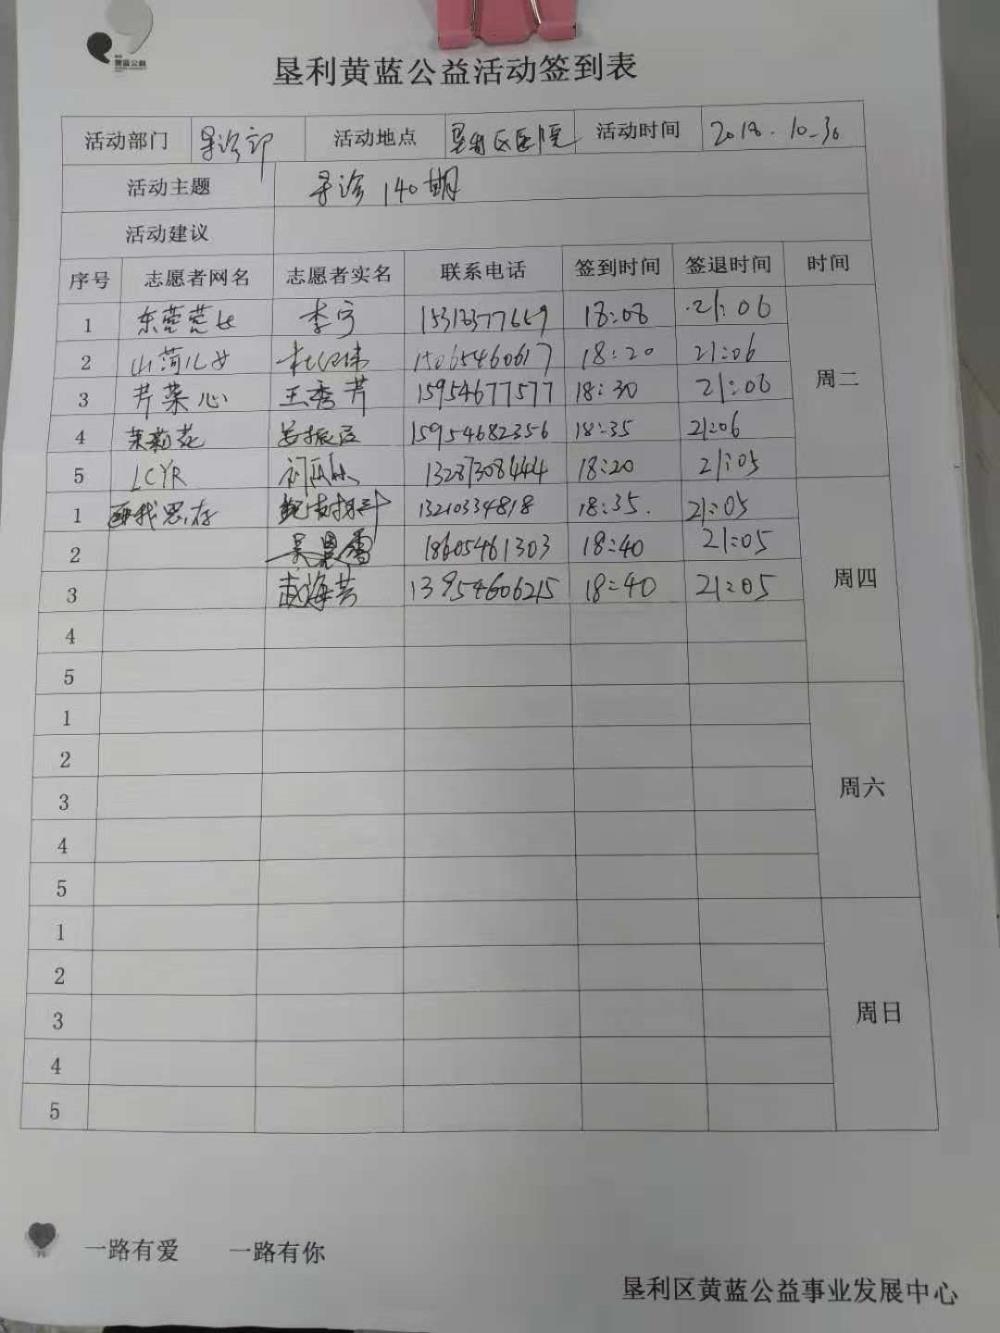 黄蓝公益
垦利黄蓝公益活动签到表
活动部门 导诊部 活动地点 垦利区医院 活动时间 2018.10.30
活动主题 导诊140期
活动建议
序号 志愿者网名 志愿者实名 联系电话 签到时间 签退时间 时间
1 李宁 15318377669 18:08 21:06
2 山菏儿女 15065460617 18:20 21:06
周二
3 芹菜心 王秀芹 15954677577 18:30 21:06
4 茉莉花 15954682356 18:35 21:06
5 LCYR 13287308444 18:20 21:05
1 我思存 13210334818 18:35 21:05
2 18605461303 18:40 21:05
周四
3 赵海芳 13954606215 18:40 21:05
4
5
1
2
3 周六
4
5
1
2
3 周日
4
5
一路有爱 一路有你
垦利区黄蓝公益事业发展中心